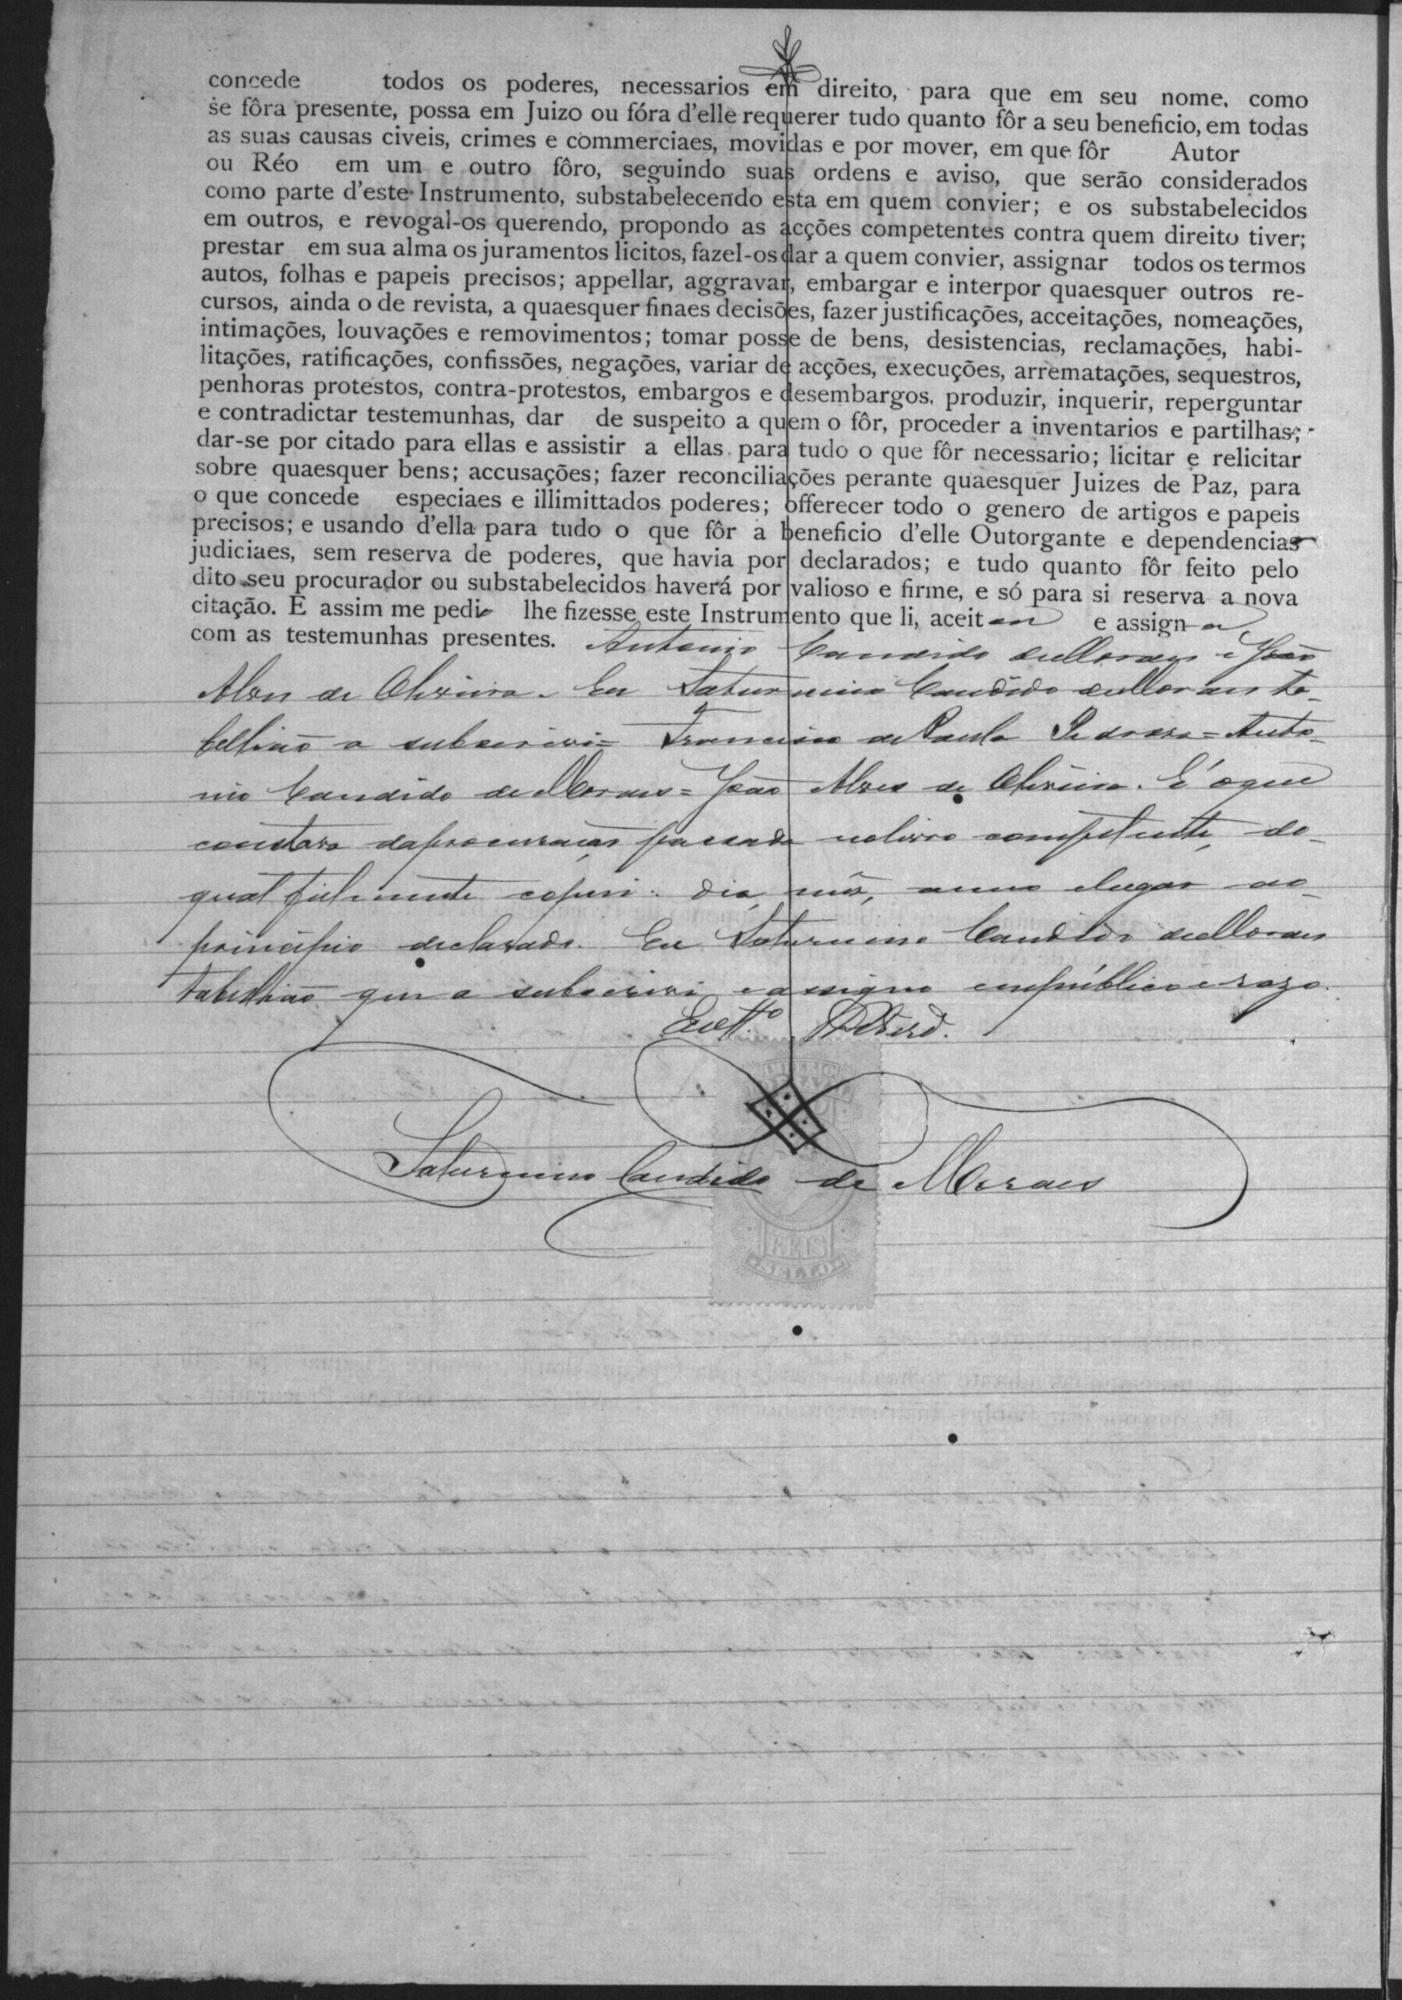 concede todos os poderes, necessarios em direito, para que em seu nome, como
se fôra presente, possa em Juizo ou fóra d'elle requerer tudo quanto fôr a seu beneficio, em todas
as suas causas civeis, crimes e commerciaes, movidas e por mover, em que fôr Autor
ou Réo em um e outro fôro, seguindo suas ordens e aviso, que serão considerados
como parte d'este Instrumento, substabelecendo esta em quem convier; e os substabelecidos
em outros, e revogal-os querendo, propondo as acções competentes contra quem direito tiver;
prestar em sua alma os juramentos licitos, fazel-os dar a quem convier, assignar todos os termos
autos, folhas e papeis precisos; appellar, aggravar, embargar e interpor quaesquer outros re-
cursos, ainda o de revista, a quaesquer finaes decisões, fazer justificações, acceitações, nomeações,
intimações, louvações e removimentos; tomar posse de bens, desistencias, reclamações, habi-
litações, ratificações, confissões, negações, variar de acções, execuções, arrematações, sequestros,
penhoras protestos, contra-protestos, embargos e desembargos, produzir, inquerir, reperguntar
e contradictar testemunhas, dar de suspeito a quem o fôr, proceder a inventarios e partilhas;
dar-se por citado para ellas e assistir a ellas para tudo o que fôr necessario; licitar e relicitar
sobre quaesquer bens; accusações; fazer reconciliações perante quaesquer Juizes de Paz, para
o que concede especiaes e illimittados poderes; offerecer todo o genero de artigos e papeis
precisos; e usando d'ella para tudo o que fôr a beneficio d'elle Outorgante e dependencias
judiciaes, sem reserva de poderes, que havia por declarados; e tudo quanto fôr feito pelo
dito seu procurador ou substabelecidos haverá por valioso e firme, e só para si reserva a nova
citação. E assim me pedio lhe fizesse este Instrumento que li, aceitou e assigna
com as testemunhas presentes. Antonio Candido de Moraes e João
Alves de Oliveira. Eu Saturnino Candido de Moraes ta-
bellião a subscrivi= Francisco de Paula Pedroso= Anto-
nio Candido de Moraes= João Alves de Oliveira. É o que
constava da procuração passada no livro competente, do
qual fielmente copiei. Dia, mês, anno e lugar ao
principio declarado. Eu Saturnino Candido de Moraes
tabellião que a subscrivi e assigno em público e razo.
Em tt.º de Verd.
Saturnino Candido de Moraes
REIS
SELLO